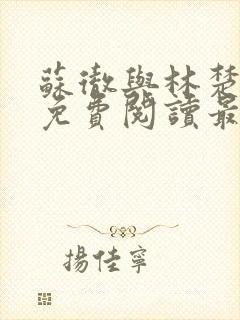 蘇徹與林楚
免費閱讀最
揚佳寧